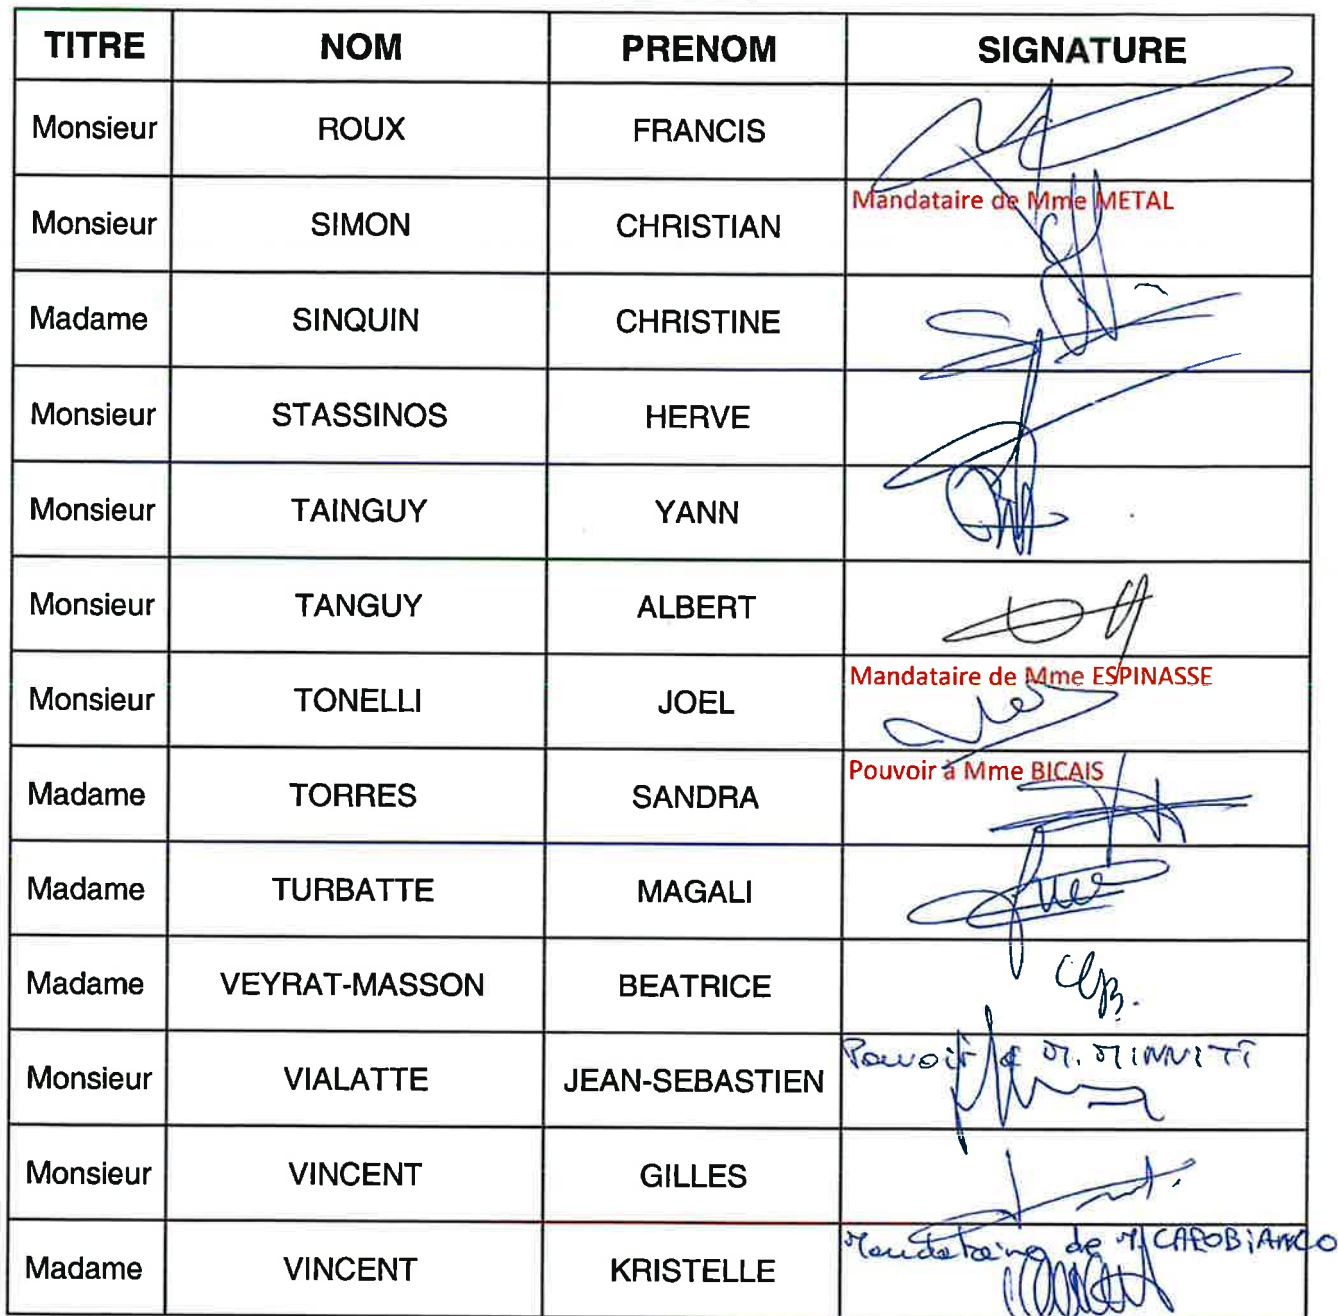 TITRE NOM PRENOM SIGNATURE
Monsieur ROUX FRANCIS
Monsieur SIMON CHRISTIAN Mandataire de Mme METAL
Madame SINQUIN CHRISTINE
Monsieur STASSINOS HERVE
Monsieur TAINGUY YANN
Monsieur TANGUY ALBERT
Monsieur TONELLI JOEL Mandataire de Mme ESPINASSE
Madame TORRES SANDRA Pouvoir à Mme BICAIS
Madame TURBATTE MAGALI
Madame VEYRAT-MASSON BEATRICE
Monsieur VIALATTE JEAN-SEBASTIEN Pouvoir à M. MINNITI
Monsieur VINCENT GILLES
Madame VINCENT KRISTELLE Mandataire de M. CAPOBIANCO